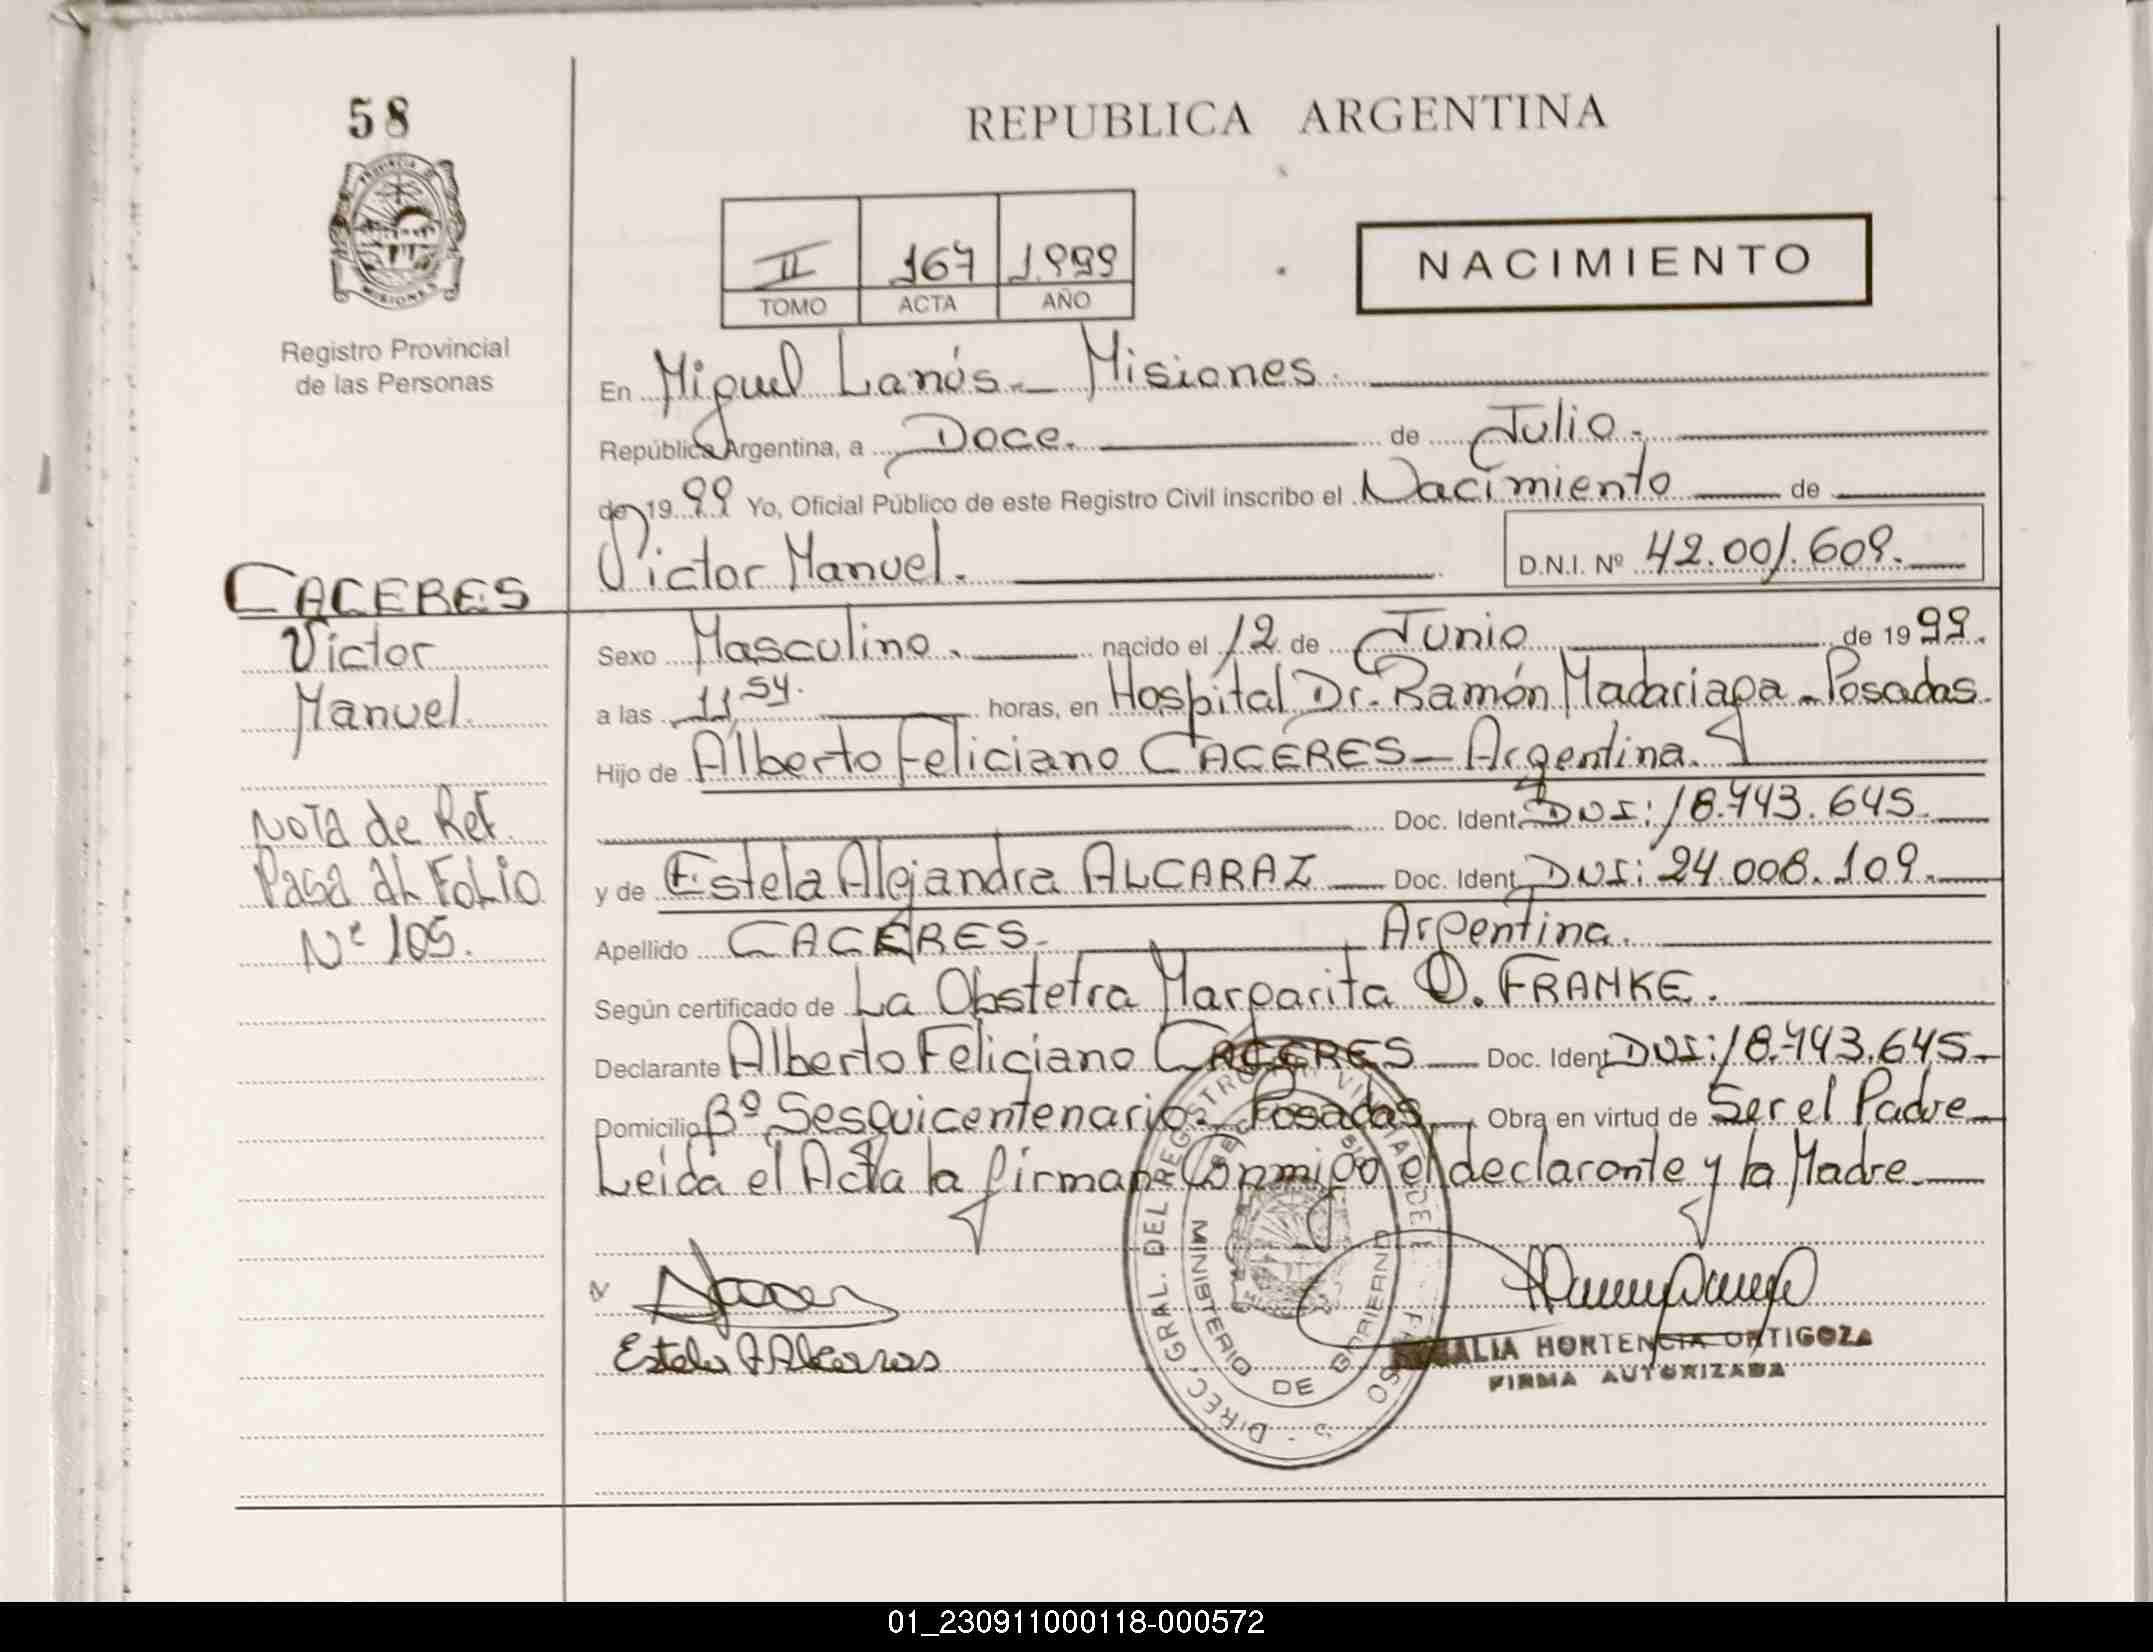 58
REPUBLICA ARGENTINA
PROVINCIA D
MISIONES
Registro Provincial
de las Personas
II 167 1.999
TOMO ACTA AÑO
NACIMIENTO
En Miguel Lanús - Misiones.
República Argentina, a Doce. de Julio.
de 1999 Yo, Oficial Público de este Registro Civil inscribo el Nacimiento de
Victor Manuel. D.N.I. Nº 42.001.609.
CACERES
Victor
Manuel.
Sexo Masculino. nacido el 12 de Junio de 1999.
a las 11,54. horas, en Hospital Dr. Ramón Madariaga - Posadas.
Hijo de Alberto Feliciano CACERES - Argentina.
Doc. Ident. DNI: 18.743.645.
y de Estela Alejandra ALCARAZ Doc. Ident. DNI: 24.008.109.
Apellido CACERES. Argentina.
Según certificado de La Obstetra Margarita O. FRANKE.
Declarante Alberto Feliciano CACERES Doc. Ident. DNI: 18.743.645.
Domicilio Bº Sesquicentenario - Posadas. Obra en virtud de Ser el Padre
Leida el Acta la firman Conmigo el declarante y la Madre.
Nota de Ref.
Pasa al Folio
Nº 105.
Estela A Alcaraz
DIREC. GRAL. DEL REGISTRO
MINISTERIO DE GOBIERNO
HORTENCIA ORTIGOZA
FIRMA AUTORIZADA
01_230911000118-000572